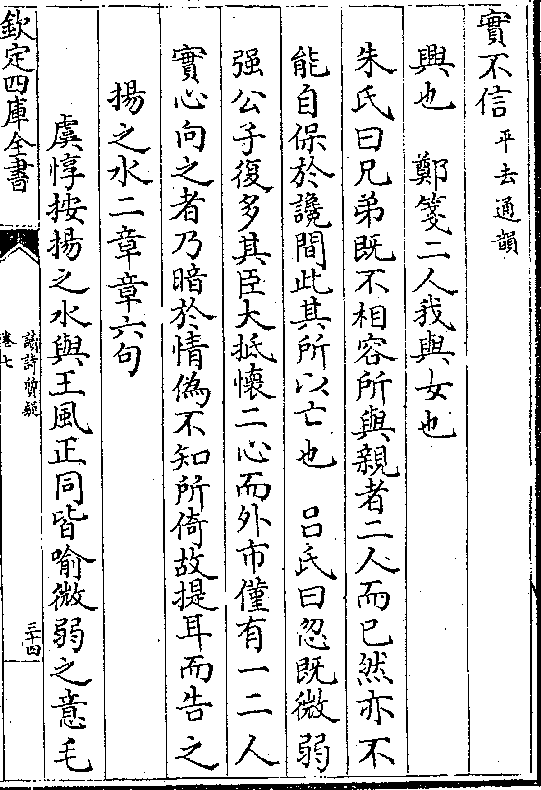 實不信平去通韻
興也　鄭箋二人我與女也
朱氏曰兄弟既不相容所與親者二人而已然亦不
能自保於讒間此其所以亡也　吕氏曰忽既微弱
强公子復多其臣大抵懷二心而外市僅有一二人
實心向之者乃暗於情偽不知所倚故提耳而告之
揚之水二章章六句
虞惇按揚之水與王風正同皆喻微弱之意毛
欽定四庫全書
讀詩質疑
卷七
三十四